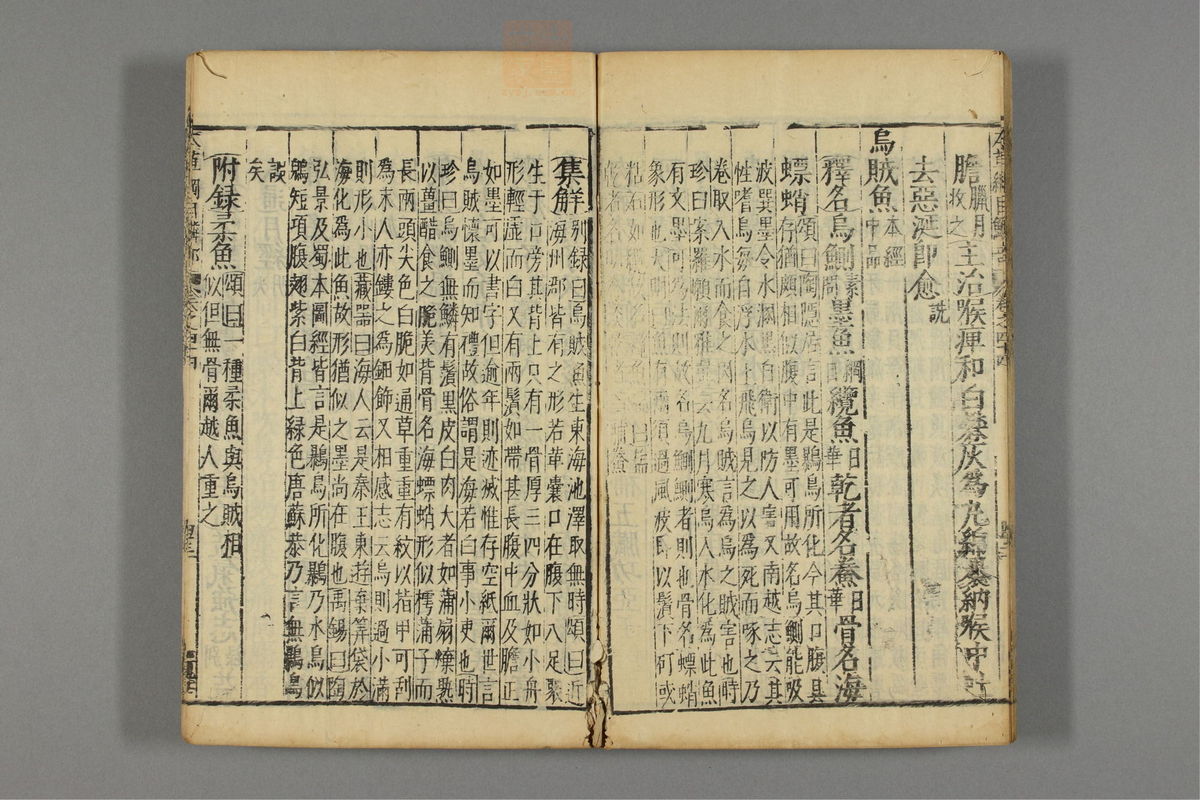 膽臘月收之主治喉痺和白礬灰爲丸綿裹納喉中吐
去惡涎即愈詵
烏賊魚本經中品
釋名烏鰂素問墨魚綱目纜魚日華乾者名鯗日華骨名海
螵蛸頌曰陶隱居言此是鸔烏所化今其口腹具
存猶頗相似腹中有墨可用故名烏鰂能吸
波噀墨令水溷黑自衛以防人害又南越志云其
性嗜烏每自浮水上飛烏見之以爲死而啄之乃
卷取入水而食之因名烏賊言爲烏之賊害也時
珍曰案羅願爾雅翼云九月寒烏入水化爲此魚
有文墨可爲法則故名烏鰂鰂者則也骨名螵蛸
象形也
須過風波即以鬚下矴或
粘石如纜
集解別錄曰烏賊魚生東海池澤取無時頌曰近
海州郡皆有之形若革囊口在腹下八足聚
生于口旁其背上只有一骨厚三四分狀如小舟
形輕虛而白又有兩鬚如帶甚長腹中血及膽正
如墨可以書字但逾年則迹滅惟存空紙爾世言
烏賊懷墨而知禮故俗謂是海若白事小吏也時
珍曰烏鰂無鱗有鬚黑皮白肉大者如蒲扇煠熟
以薑醋食之脆美背骨名海螵蛸形似樗蒲子而
長兩頭尖色白脆如通草重重有紋以指甲可刮
爲末人亦鏤之爲鈿飾又相感志云烏則過小滿
則形小也藏器曰海人云是秦王東遊棄筭袋於
海化爲此魚故形猶似之墨尚在腹也禹錫曰陶
弘景及蜀本圖經皆言是鸔烏所化鸔乃水烏似
鶂短項腹翅紫白背上緑色唐蘇恭乃言無鸔烏
誤矣
附録柔魚頌曰一種柔魚與烏賊相
似但無骨爾越人重之